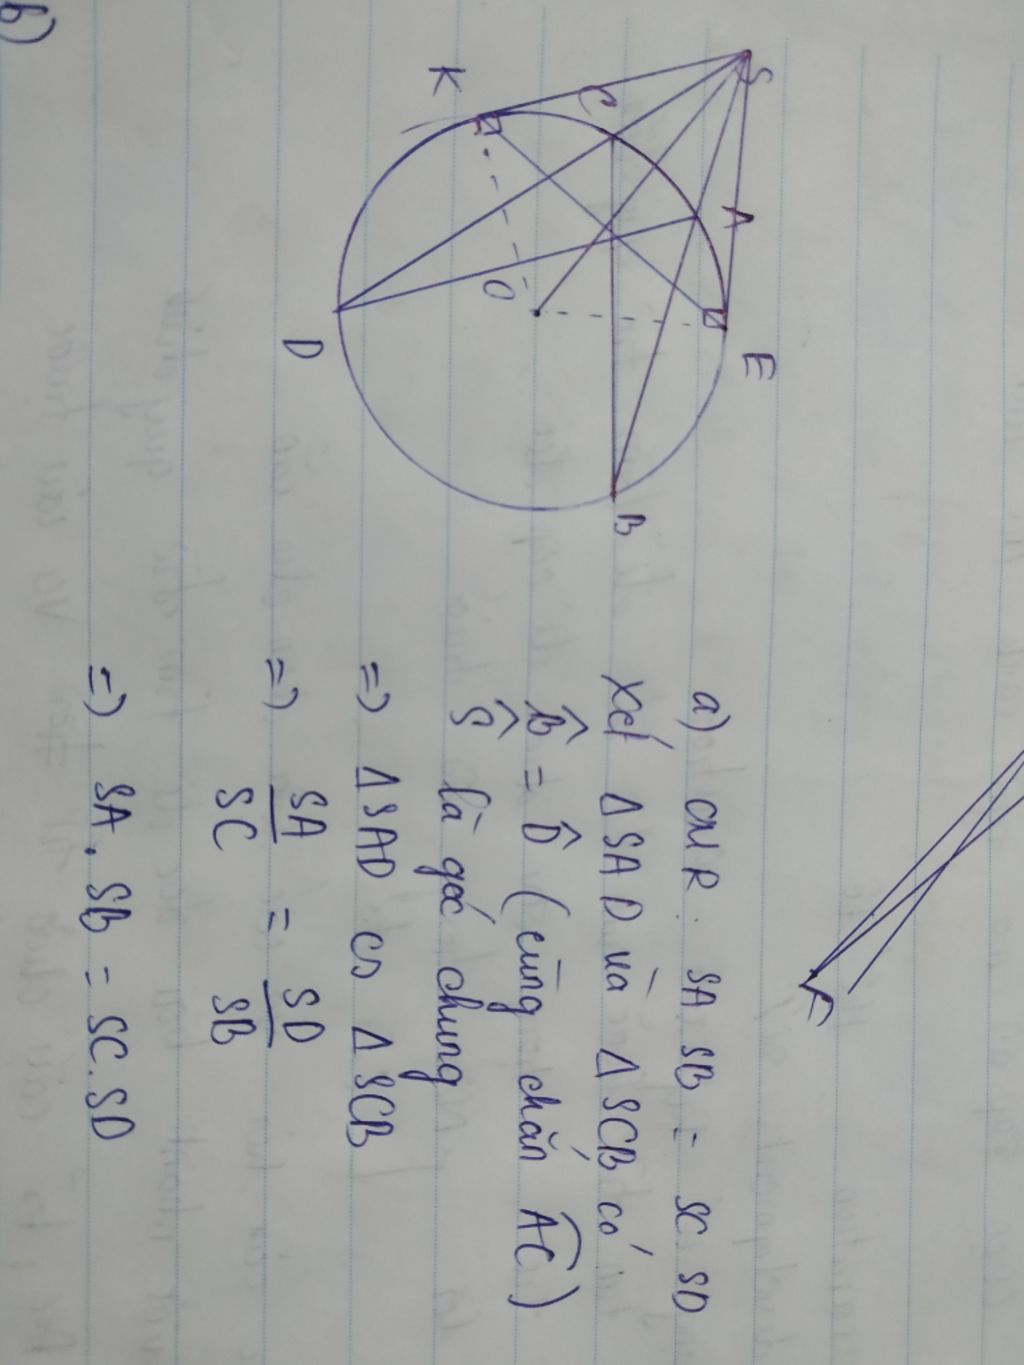 S
K
C
A
O
E
D
B
F
a) CMR: SA.SB = SC.SD
Xét Δ SAD và Δ SCB có
B̂ = D̂ (cùng chắn AC)
Ŝ là góc chung
=> Δ SAD ᔕ Δ SCB
=> SA/SC = SD/SB
=> SA.SB = SC.SD
b)